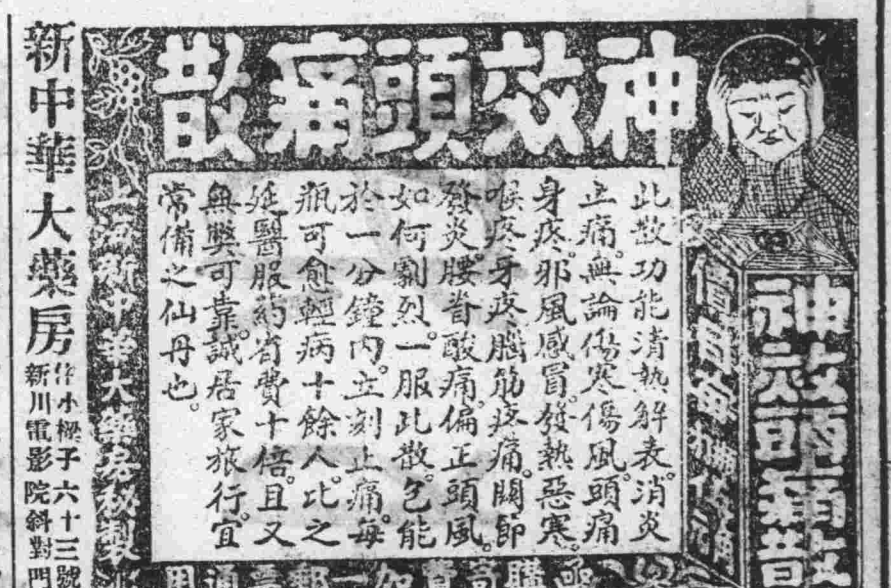 神效頭痛散
神效頭痛散
此散功能清熱解表。消炎
止痛。無論傷寒傷風頭痛
身疼。邪風感冒。發熱惡寒。
喉疼牙疼。腦筋疼痛。關節
發炎。腰脊酸痛。偏正頭風。
如何劇烈。一服此散。包能
於一分鐘內。立刻止痛。每
瓶可愈輕病十餘人。比之
延醫服藥省費十倍。且又
無弊可靠。誠居家旅行宜
常備之仙丹也。
上海新中華大藥房
新中華大藥房
小樑子六十三號
新川電影院斜對門